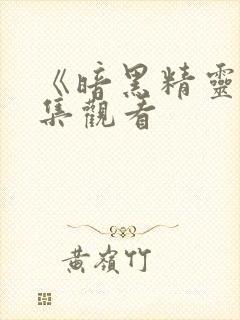 《暗黑精靈
集觀看
黃嶺竹